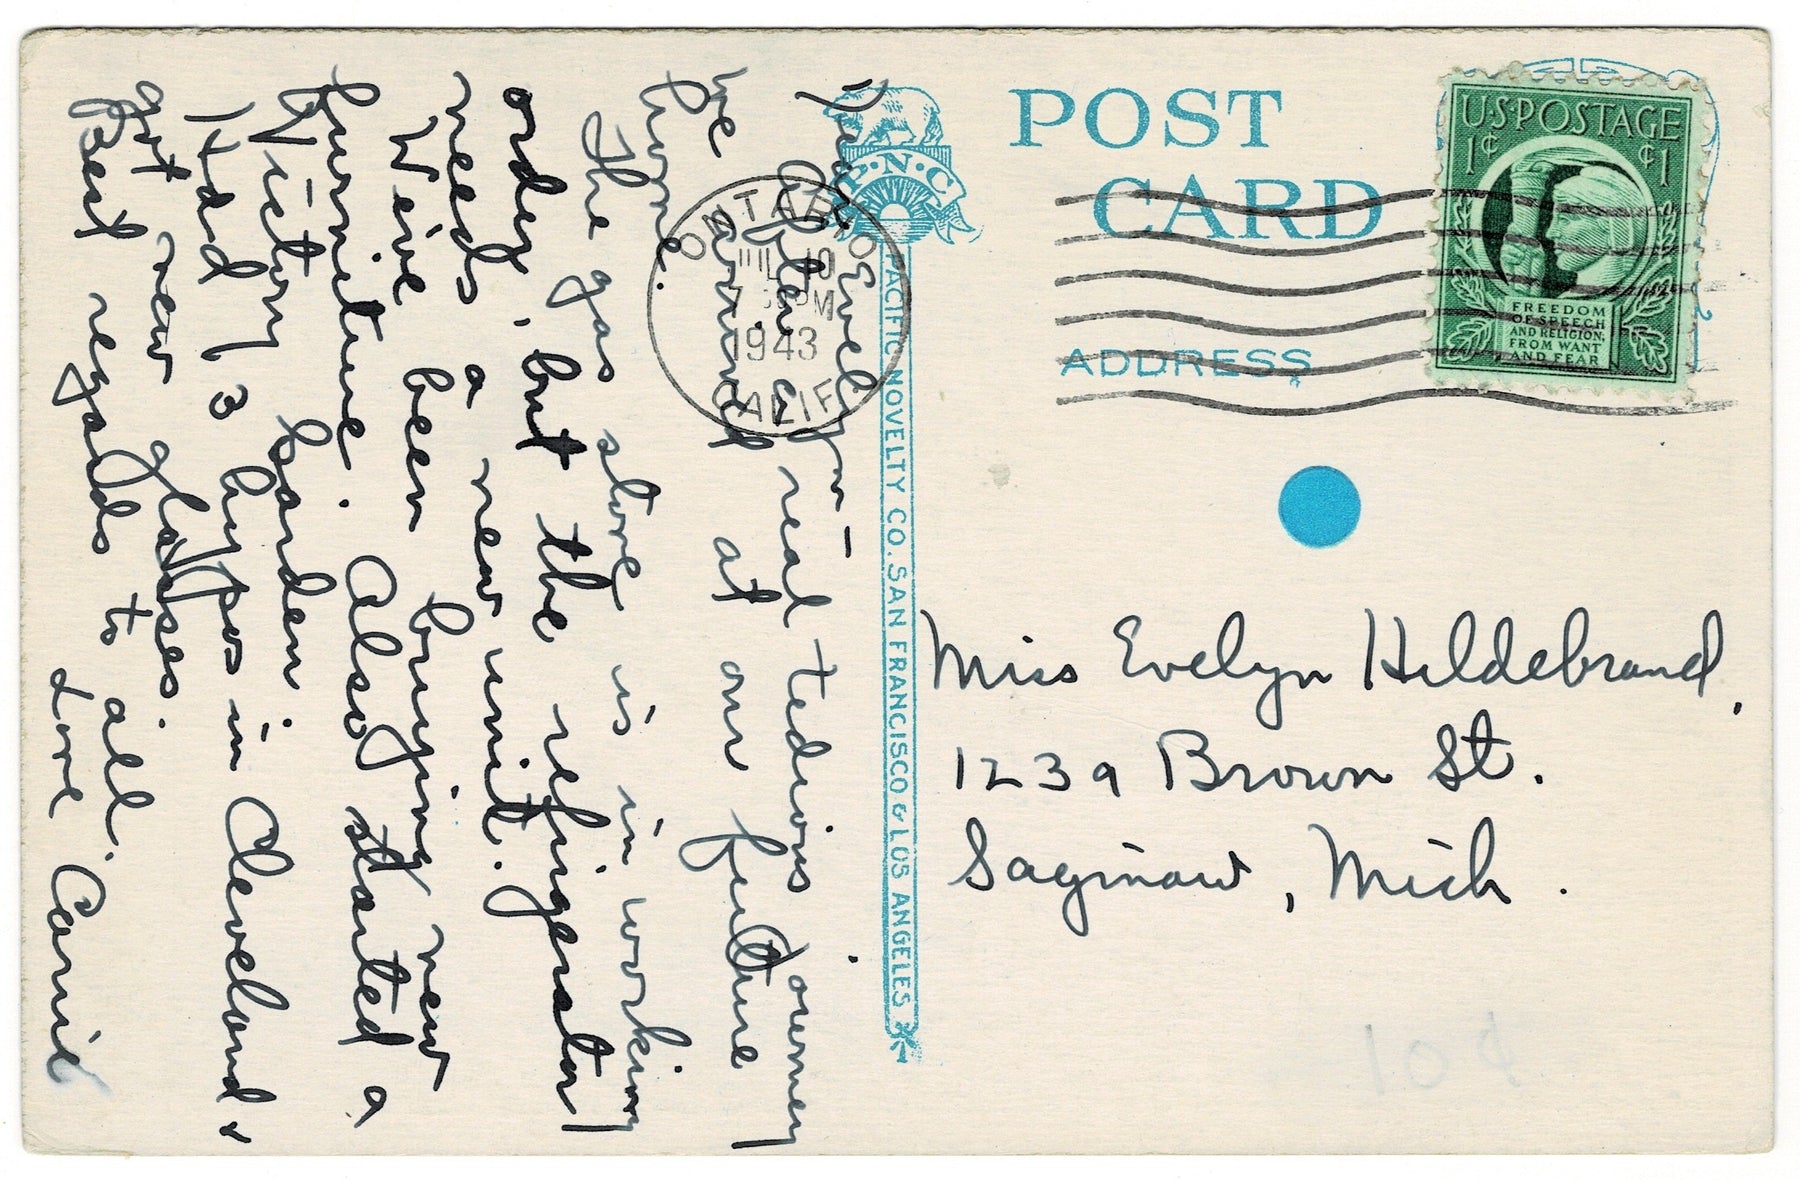 Dear Evelyn –
After a real tedious journey
we arrived at our future
home.
The gas stove is in working
order, but the refrigerator
needs a new unit.
We've been buying new
furniture. Also started a
Victory Garden.
Had 3 hypos in Cleveland &
got new glasses.
Best regards to all.
Love Carrie
P.N.C.
PACIFIC NOVELTY CO. SAN FRANCISCO & LOS ANGELES
POST
CARD
ADDRESS
ONTARIO
JUL 10
PM
1943
CALIF
U.S. POSTAGE
1¢ ¢1
FREEDOM
OF SPEECH
AND RELIGION,
FROM WANT
AND FEAR
Miss Evelyn Hildebrand,
1239 Brown St.
Saginaw, Mich.